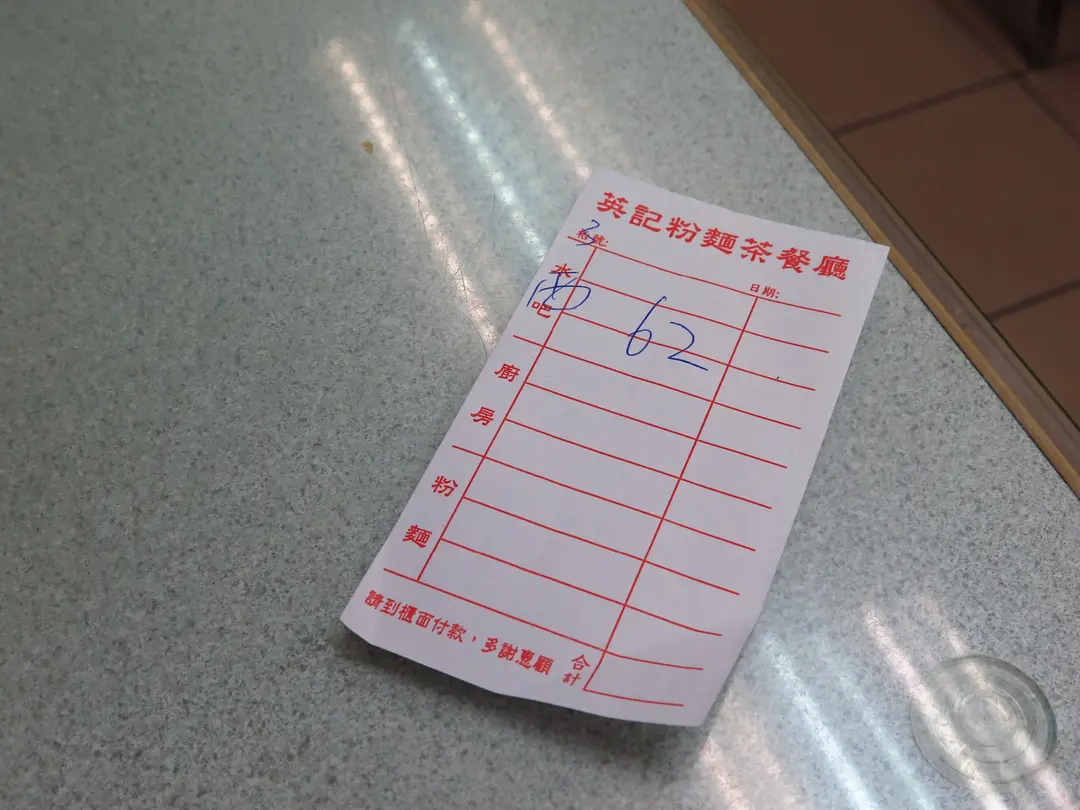 英記粉麵茶餐廳
枱號: 3
日期:
水吧
62
廚房
粉麵
請到櫃面付款，多謝惠顧
合計